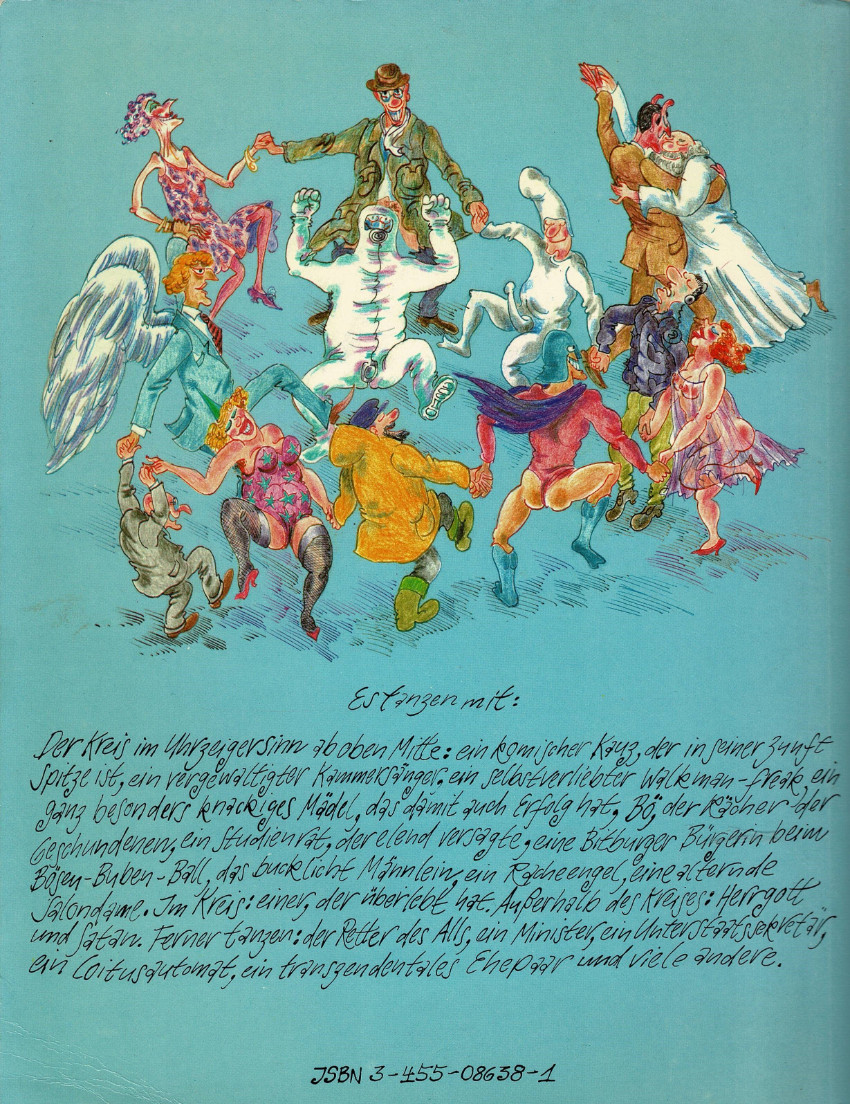 Es tanzen mit:
Der Kreis im Uhrzeigersinn ab oben Mitte: ein komischer Kauz, der in seiner Zunft
Spitze ist, ein vergewaltigter Kammersänger, ein selbstverliebter Walkman-freak, ein
ganz besonders knackiges Mädel, das damit auch Erfolg hat, Bö, der Rächer der
Geschundenen, ein Studienrat, der elend versagte, eine Bitburger Bürgerin beim
Bösen-Buben-Ball, das bucklicht Männlein, ein Racheengel, eine alternde
Salondame. Im Kreis: einer, der überlebt hat. Außerhalb des Kreises: Herrgott
und Satan. Ferner tanzen: der Retter des Alls, ein Minister, ein Unterstaatssekretär,
ein Coitusautomat, ein transzendentales Ehepaar und viele andere.
ISBN 3-455-08638-1